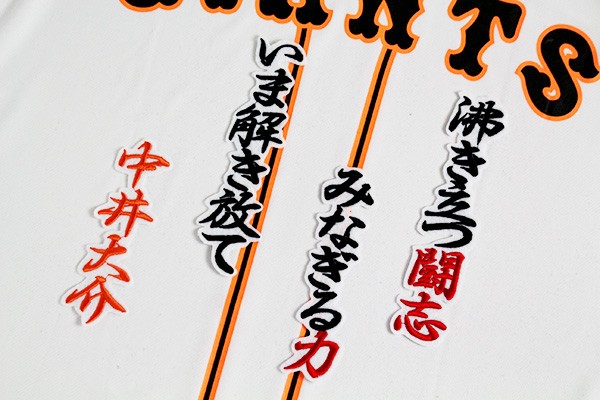 GIANTS
沸き立つ闘志
みなぎる力
いま解き放て
中井大介